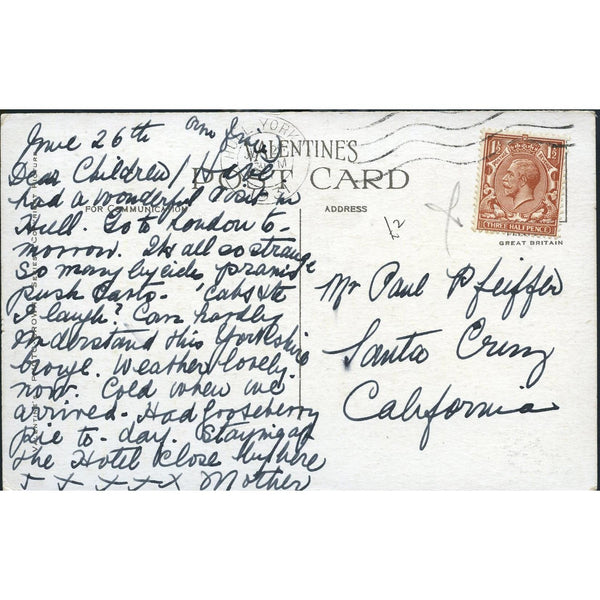 June 26th
Dear Children / Have
had a wonderful visit in
Hull. Go to London to-
morrow. It's all so strange
So many bycicles prams
push carts. Cabs etc
I laugh? Can hardly
understand this Yorkshire
brogue. Weather lovely.
now. Cold when we
arrived. Had gooseberry
pie to-day. Staying at
the Hotel close by here
+ x x x x Mother
YORK
VALENTINE'S
POST CARD
FOR COMMUNICATION
ADDRESS
1½ 1½
THREE HALF PENCE
GREAT BRITAIN
Mr Paul Pfeiffer
Santa Cruz
California